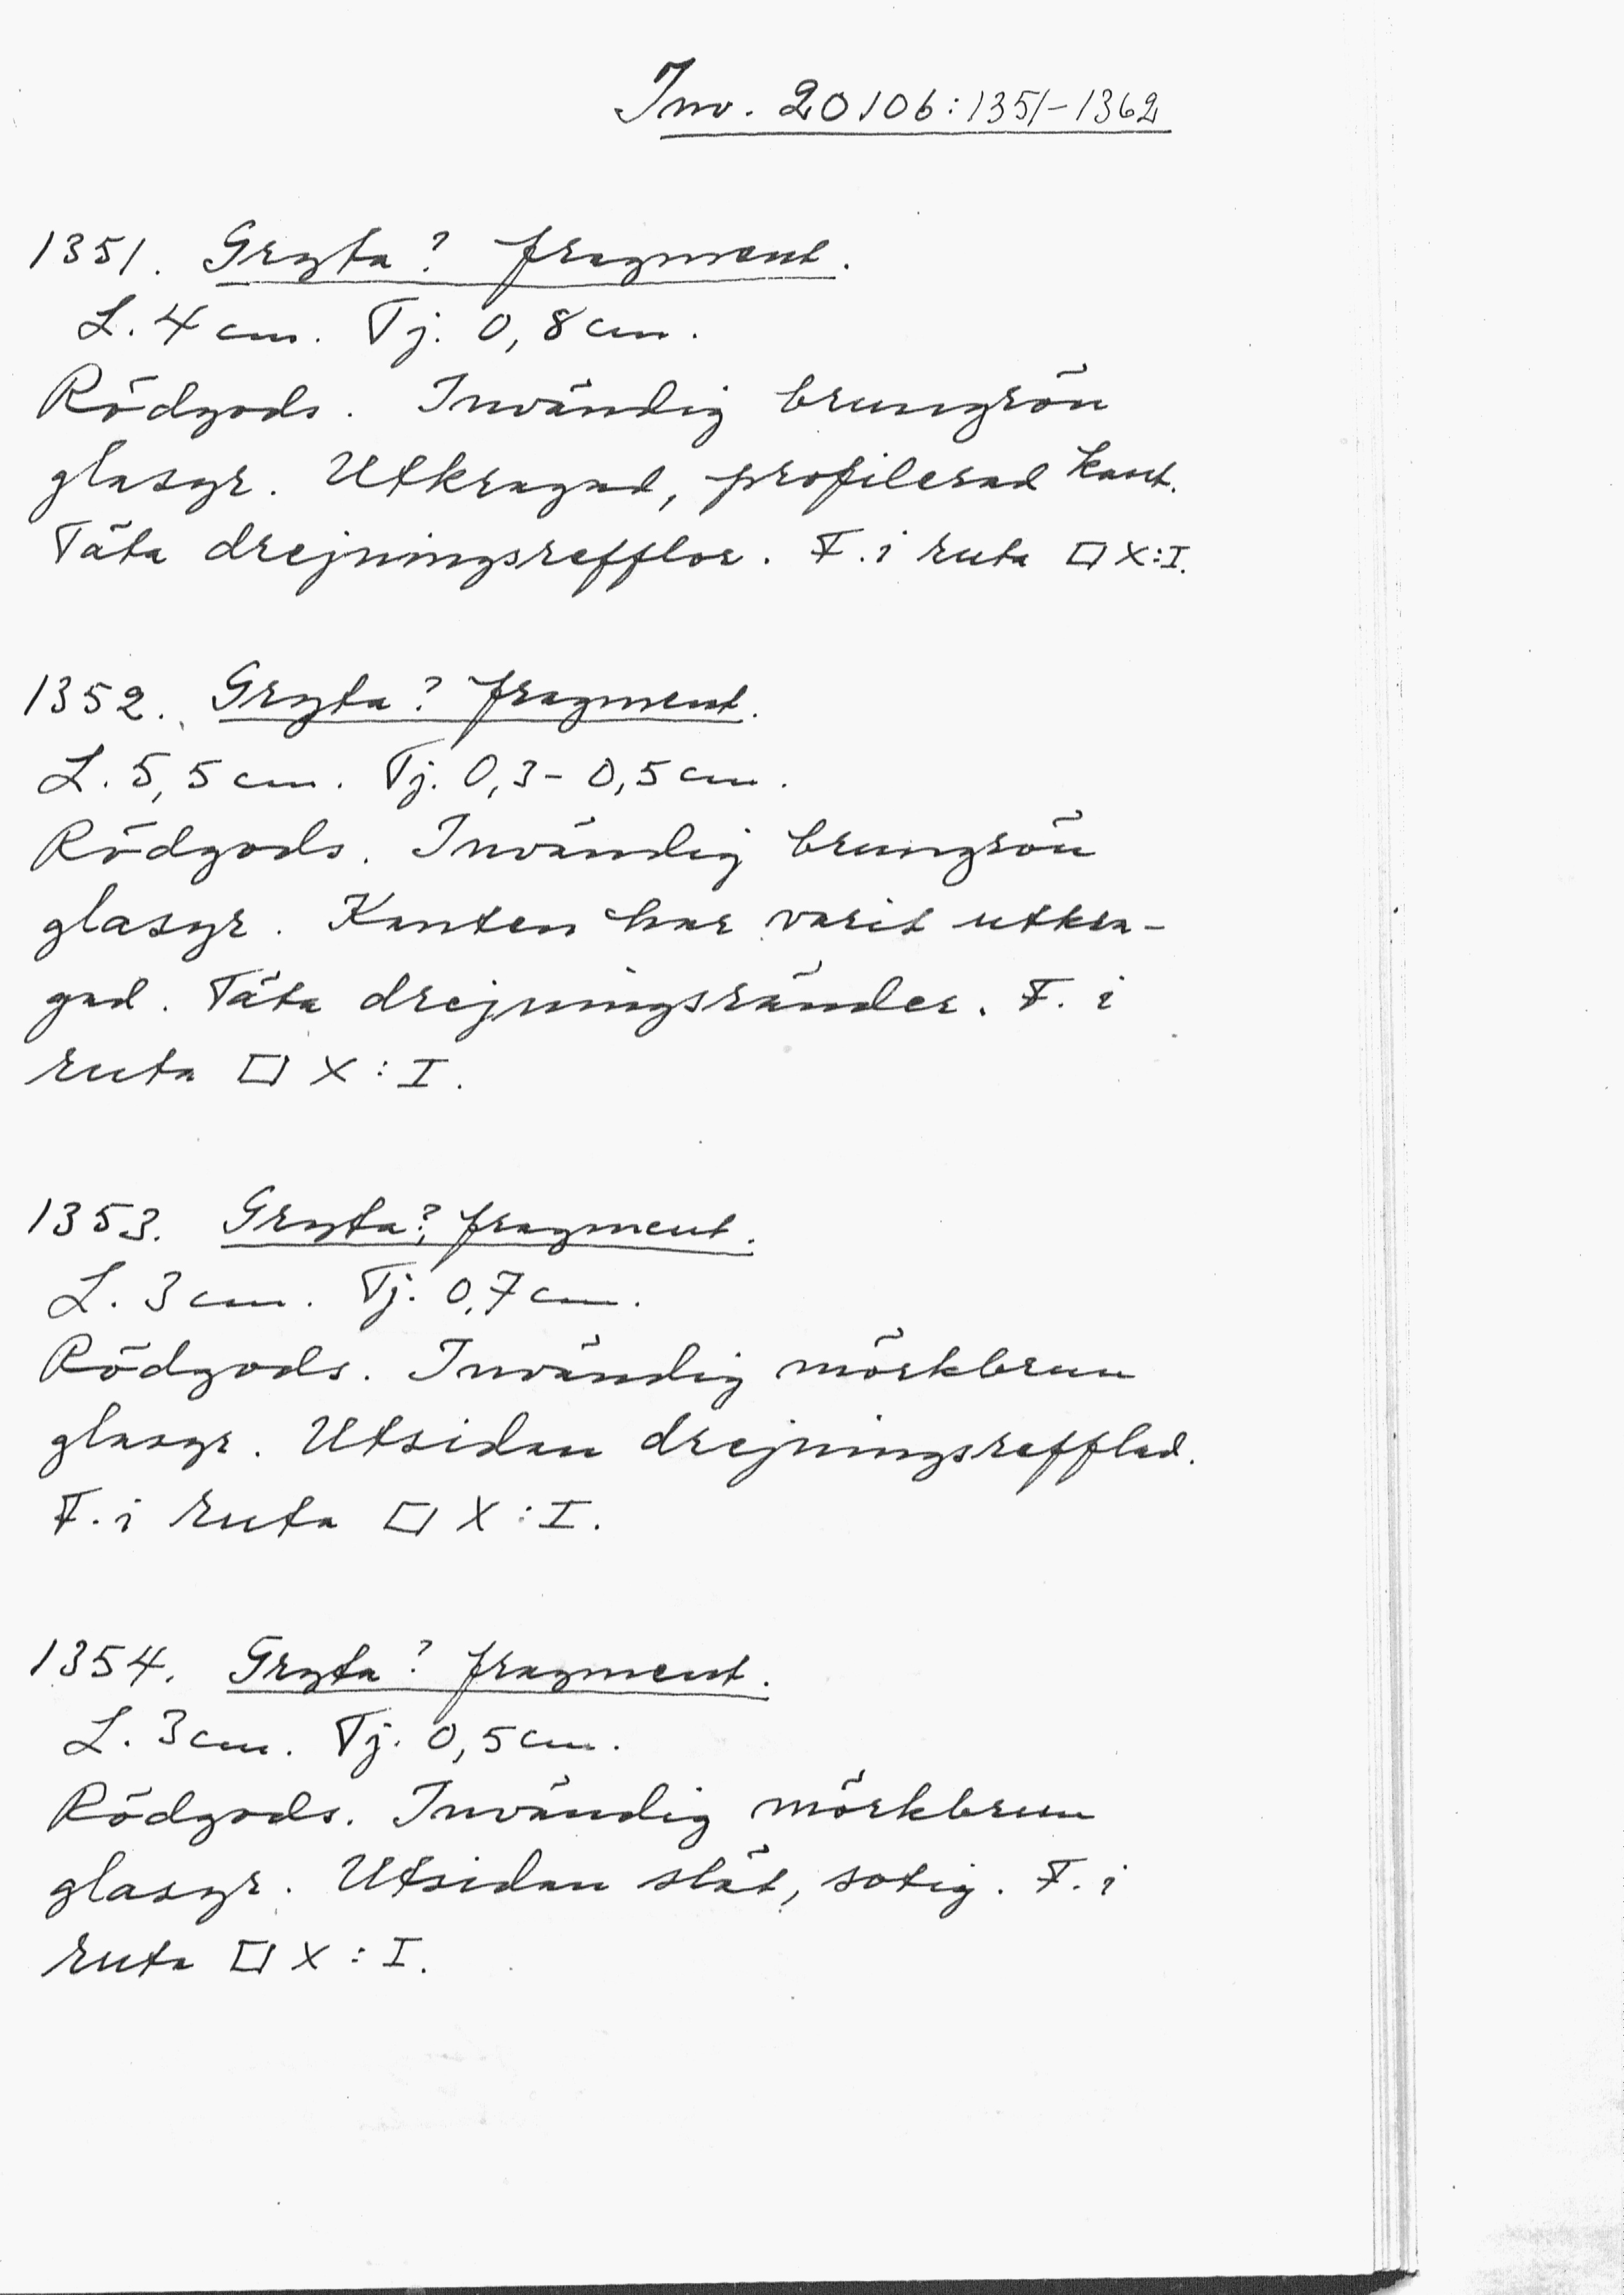 Inv. 20106:1351-1362
1351. Gryta? fragment.
L. 4 cm. Tj. 0,8 cm.
Rödgods. Invändig brungrön
glasyr. Utkragad, profilerad kant.
Täta drejningsrefflor. F. i ruta □ X:I.
1352. Gryta? fragment.
L. 5,5 cm. Tj. 0,3-0,5 cm.
Rödgods. Invändig brungrön
glasyr. Kanten har varit utkra-
gad. Täta drejningsränder. F. i
ruta □ X:I.
1353. Gryta? fragment.
L. 3 cm. Tj. 0,7 cm.
Rödgods. Invändig mörkbrun
glasyr. Utsidan drejningsrefflad.
F. i ruta □ X:I.
1354. Gryta? fragment.
L. 3 cm. Tj. 0,5 cm.
Rödgods. Invändig mörkbrun
glasyr. Utsidan slät, sotig. F. i
ruta □ X:I.